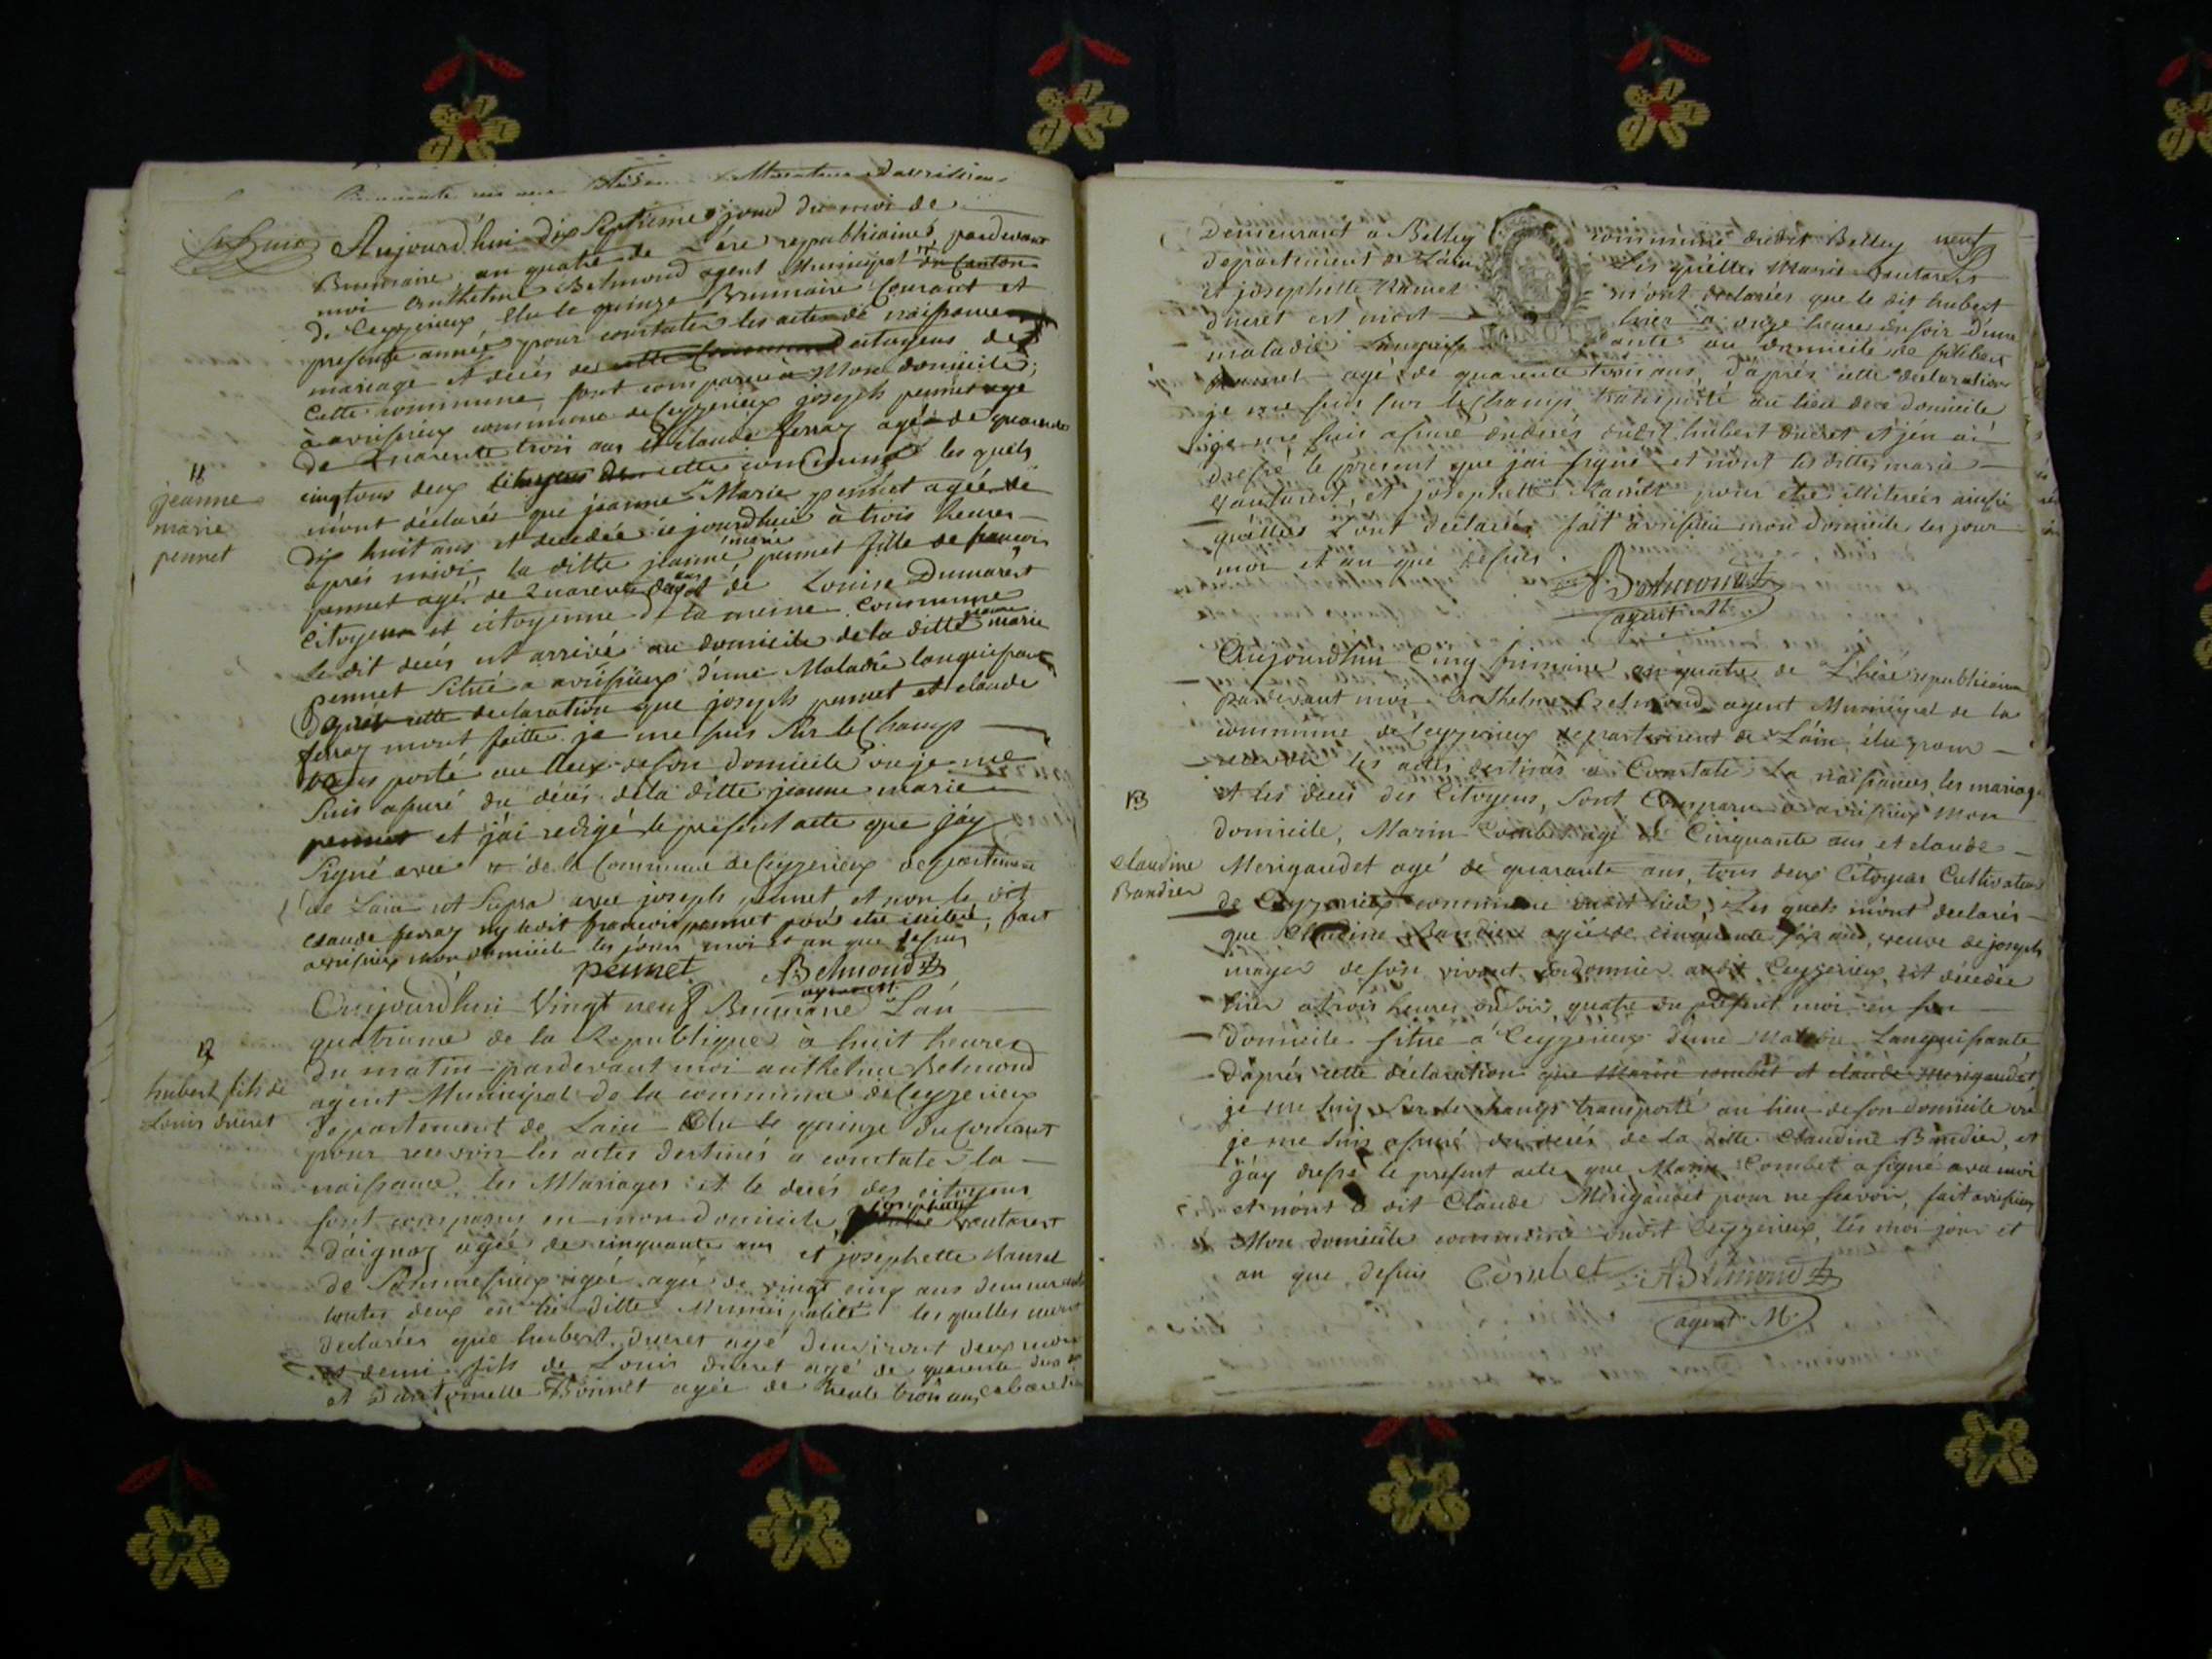 Aujourd'hui dix Septieme jour du moi de
Brumaire, an quatre de L'ére republicaines pardevant
moi Anthelme Belmond agent Municipal du Canton
de Ceyzerieux, elu le quinze Brumaire Courant et
presente année pour constater les actes de naissance
mariage et décés de cette Commune citoyens de
Cette commune, sont comparu à Mon domicile,
à avrissieux commune de Ceyzerieux joseph pennet agé
de Quarente trois ans et claude ferraz agé de quarente
cinq tous deux citoyens de cette commune les quels
11
jeanne
marie
pennet
m'ont déclarés que jeanne Marie pennet agée de
dix huit ans est decedée ce jourdhuit à trois heures
aprés midi, la ditte jeanne marie pennet fille de francois
pennet agé de Quarente ans et de Louise Dumarest
Citoyen et citoyenne de la meme Commune
le dit decés est arrivé au domicile de la ditte jeanne marie
pennet situé a avrissieux d'une Maladie languissante
Daprés cette declaration que joseph pennet et claude
ferraz m'ont faitte je me suis sur le Champ
transporté au lieux de son domicile ou je me
suis assuré du décés de la ditte jeanne marie
pennet et j'ai redigé le present acte que j'ay
signé avec de la Commune de Ceyzerieux departement
de Lain ut Supra avec joseph pennet, et non le dit
claude ferraz ny ledit francois pennet pour etre illiteré, fait
avrissieux mon domicile les jours moi et an que dessus
pennet ABelmond
agent M.
Aujourdhui Vingt neuf Brumaire L'an
quatrieme de la Republique à huit heures
du matin pardevant moi anthelme Belmond
12
hubert fils de
Louis ducret
agent Municipal de la commune de Ceyzerieux
departement de Lain Elu le quinze du Courant
pour recevoir les actes destinés a constater la
naissance, les Mariages et le decés des citoyens
sont comparus en mon domicile, josephette vautaret
d'aignoz agée de cinquante ans et josephette Ramel
de agée agée de vingt cinq ans demeurant
toutes deux en la ditte Municipalité les quelles mont
declarées que hubert ducret agé d'environt deux mois
et demi fils de Louis ducret agé de quarente deux ans
et Bonnet agée de trente trois ans, cabaretier
demeurant a Belley commune dudit Belley neuf
departement de Lain Les quelles Marie vautaret
et josephette Ramel m'ont declarées que le dit hubert
ducret est mort hier a onze heure du soir d'une
maladie languissante au domicile de filibert
pennet agé de quarente trois ans, d'aprés cette declaration
je me suis sur le Champ, transporté au lieu de domicile
je me suis assuré du decés dudit hubert ducret et j'en ai
dressé le present que j'ai signé et n'ont les dittes marie
vautaret, et josephette Ramel pour etre illiterées ainsi
qu'elles l'ont declarées fait avrissieu mon domicile les jour
moi et an que dessus.
ABelmond
agent M.
Aujourdhui Cinq frimaire, an quatre de L'hére republicaine
pardevant moi Anthelme Belmond agent Municipal de la
commune de Ceyzerieux departement de L'ain élu pour
recevoir les actes destinés a Constater la naissances, les mariage
13
et les decés des Citoyens, sont Comparu a avrissieux mon
domicile, Marin Combet agé de Cinquante ans et claude
claudine
Bandier
Merigaudet agé de quarante ans, tous deux Citoyens Cultivateurs
de Ceyzerieux commune dudit lieu, Les quels m'ont declarés
que Claudine Bandier agée de cinquante six ans, veuve de joseph
mager de son vivant cordonnier audit Ceyzerieux, est décedée
hier a trois heures du soir, quatre du present moi en son
domicile situé a Ceyzerieux d'une Maladie Languissante
d'aprés cette déclaration que Marin combet et claude Merigaudet,
je me suis sur le champ transporté au lieu de son domicile ou
je me suis assuré du decés de la ditte Claudine Bandier, et
j'ay dressé le present acte que Marin Combet a signé avec moi
et n'ont le dit Claude Merigaudet pour ne sçavoir, fait avrissieux
Mon domicile commune dudit Ceyzerieux, les moi jour et
an que dessus Combet ABelmond
agent M.